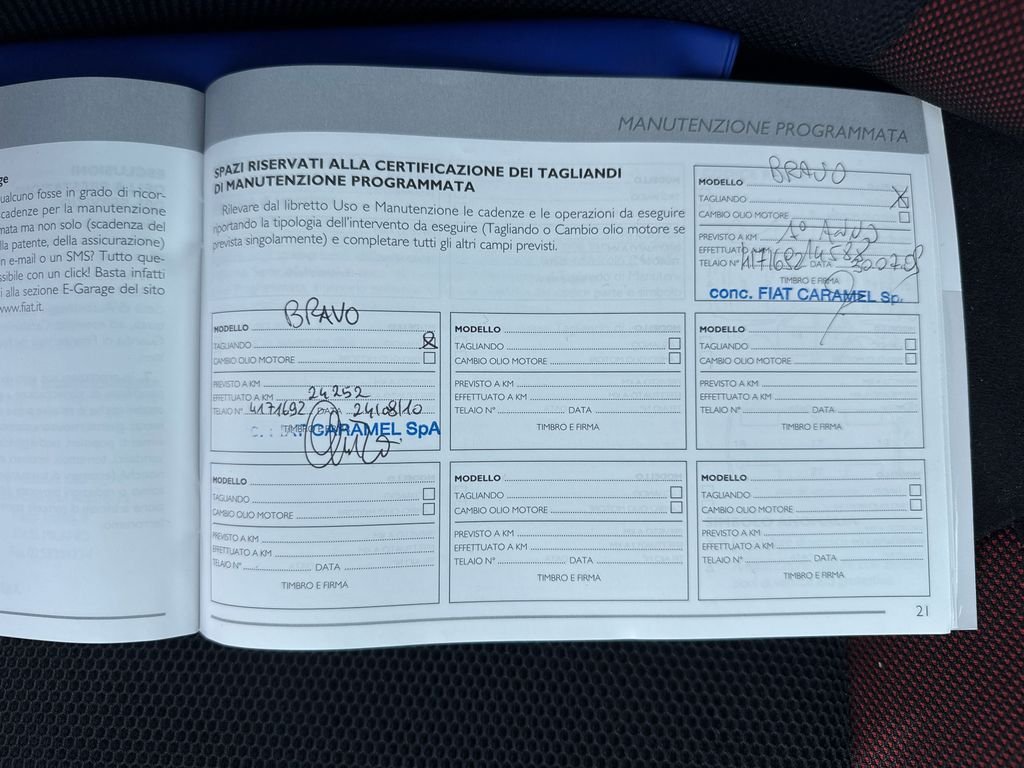 ge
ualcuno fosse in grado di ricor-
cadenze per la manutenzione
mata ma non solo (scadenza del
lla patente, della assicurazione)
n e-mail o un SMS? Tutto que-
ssibile con un click! Basta infatti
i alla sezione E-Garage del sito
www.fiat.it.
MANUTENZIONE PROGRAMMATA
SPAZI RISERVATI ALLA CERTIFICAZIONE DEI TAGLIANDI
DI MANUTENZIONE PROGRAMMATA
Rilevare dal libretto Uso e Manutenzione le cadenze e le operazioni da eseguire
riportando la tipologia dell'intervento da eseguire (Tagliando o Cambio olio motore se
prevista singolarmente) e completare tutti gli altri campi previsti.
MODELLO BRAVO
TAGLIANDO X
CAMBIO OLIO MOTORE
PREVISTO A KM 1° ANNO
EFFETTUATO A KM 14588
TELAIO N° 4171692 DATA
TIMBRO E FIRMA
conc. FIAT CARAMEL Sp.
MODELLO BRAVO
TAGLIANDO X
CAMBIO OLIO MOTORE
PREVISTO A KM
EFFETTUATO A KM 24252
TELAIO N° 4171692 DATA 24/08/10
TIMBRO E FIRMA
CARAMEL SpA
MODELLO
TAGLIANDO
CAMBIO OLIO MOTORE
PREVISTO A KM
EFFETTUATO A KM
TELAIO N° DATA
TIMBRO E FIRMA
MODELLO
TAGLIANDO
CAMBIO OLIO MOTORE
PREVISTO A KM
EFFETTUATO A KM
TELAIO N° DATA
TIMBRO E FIRMA
MODELLO
TAGLIANDO
CAMBIO OLIO MOTORE
PREVISTO A KM
EFFETTUATO A KM
TELAIO N° DATA
TIMBRO E FIRMA
MODELLO
TAGLIANDO
CAMBIO OLIO MOTORE
PREVISTO A KM
EFFETTUATO A KM
TELAIO N° DATA
TIMBRO E FIRMA
MODELLO
TAGLIANDO
CAMBIO OLIO MOTORE
PREVISTO A KM
EFFETTUATO A KM
TELAIO N° DATA
TIMBRO E FIRMA
21